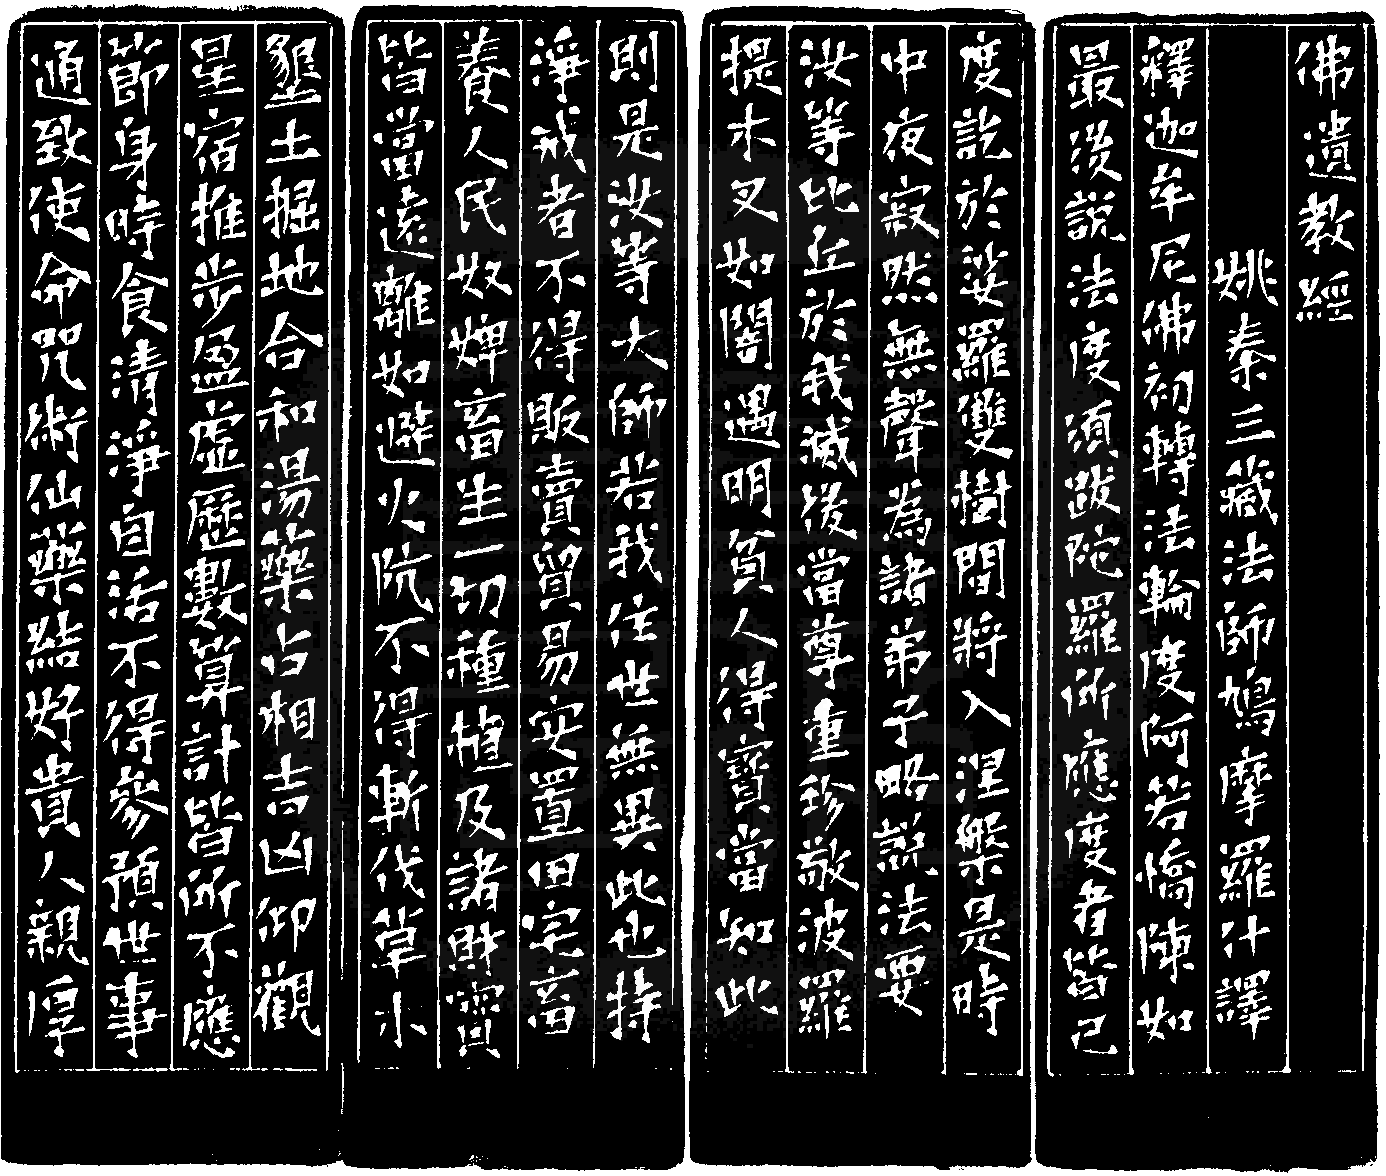 佛遺教經
姚秦三藏法師鳩摩羅什譯
釋迦牟尼佛初轉法輪度阿若憍陳如
最後說法度須跋陀羅所應度者皆已
度說於娑羅雙樹間將入涅槃是時
中夜寂然無聲為諸弟子略說法要
汝等比丘於我滅後當尊重珍敬波羅
提木叉如闇遇明貧人得寶當知此
則是汝等大師若我住世無異此也持
淨戒者不得販賣貿易安置田宅畜
養人民奴婢畜生一切種植及諸財寶
皆當遠離如避火阬不得斬伐草木
墾土掘地合和湯藥占相吉凶仰觀
星宿推步盈虛歷數算計皆所不應
節身時食清淨自活不得參預世事
通致使命咒術仙藥結好貴人親厚